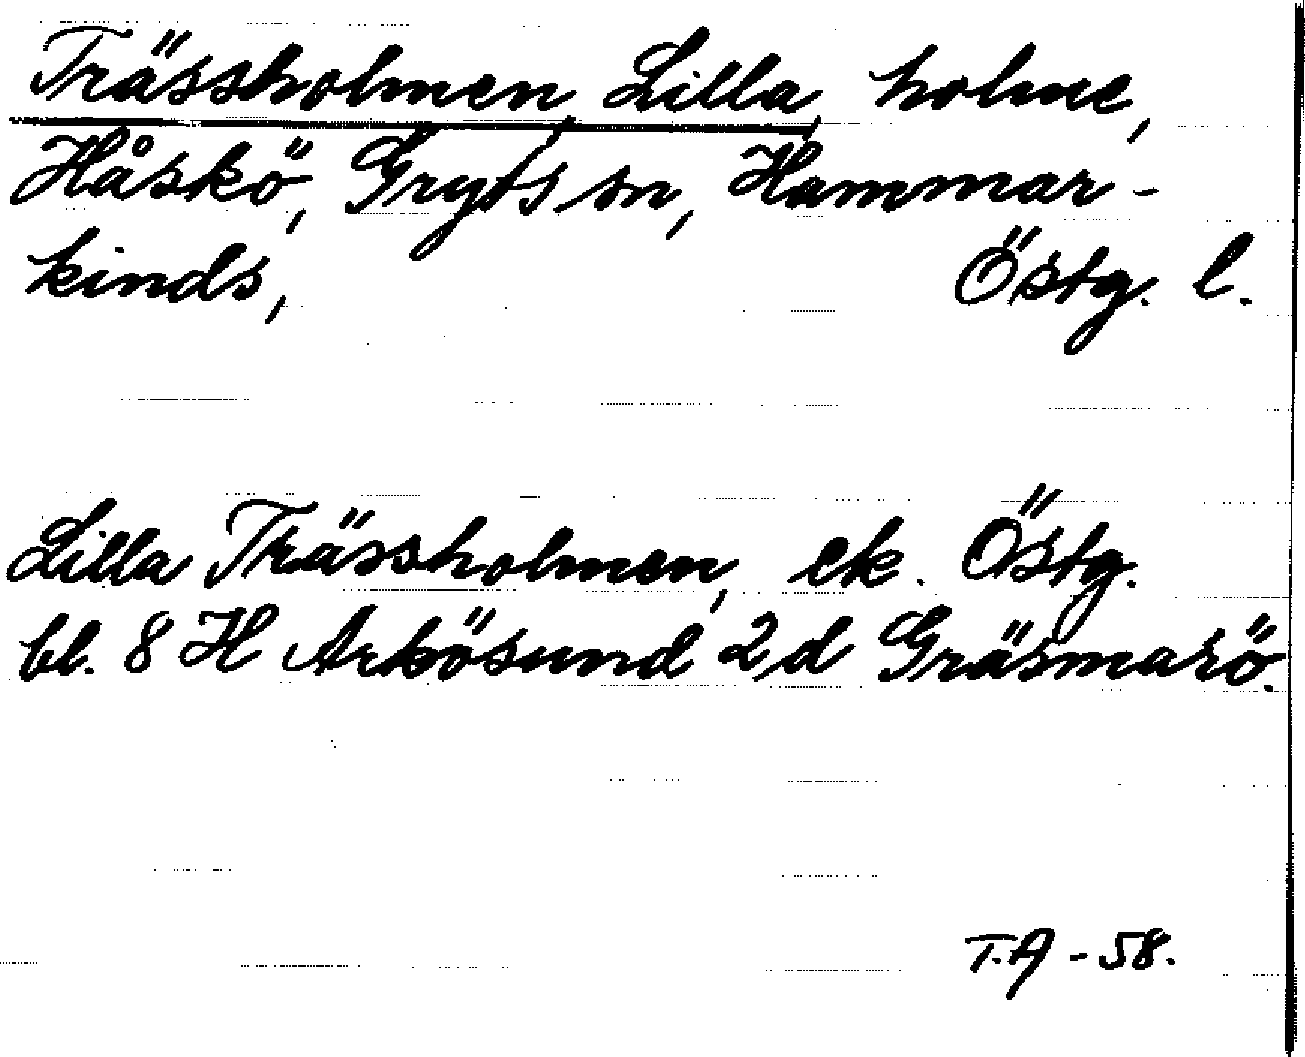 Trässholmen, Lilla, holme,
Håskö, Gryts sn, Hammar-
kinds, Östg. l.
Lilla Trässholmen, ek. Östg.
bl. 8 H Arkösund 2 d Gräsmarö.
T.A - 58.